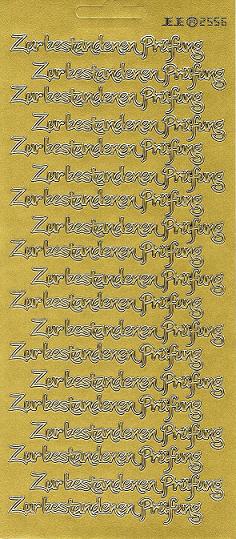 JEJE® 2556
Zur bestandenen Prüfung
Zur bestandenen Prüfung
Zur bestandenen Prüfung
Zur bestandenen Prüfung
Zur bestandenen Prüfung
Zur bestandenen Prüfung
Zur bestandenen Prüfung
Zur bestandenen Prüfung
Zur bestandenen Prüfung
Zur bestandenen Prüfung
Zur bestandenen Prüfung
Zur bestandenen Prüfung
Zur bestandenen Prüfung
Zur bestandenen Prüfung
Zur bestandenen Prüfung
Zur bestandenen Prüfung
Zur bestandenen Prüfung
Zur bestandenen Prüfung
Zur bestandenen Prüfung